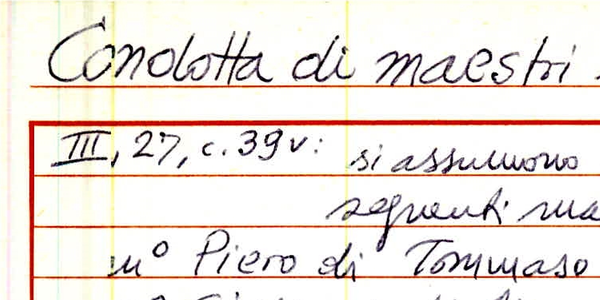 Condotta di maestri
III, 27, c. 39v: si assumono
seguenti
mº Piero di Tommaso